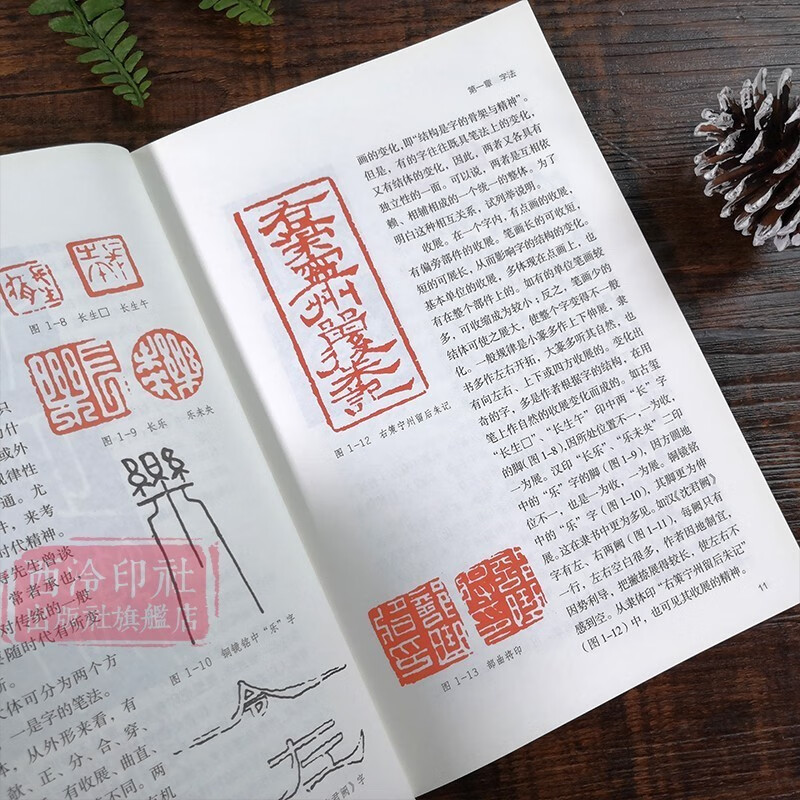 图 1-8 长生□ 长生午
图 1-9 长乐 乐未央
图 1-10 铜镜铭中“乐”字
君阙》字
只
什
或外
规律性
通。尤
件，来考
时代精神。
先生曾谈
常者承也，
对传统的一般
随时代有所变
所。
大体可分为两个方
一是字的笔法。
，从外形来看，有
献、正、分、合、穿、
有收展、曲直、
不同。两
有机
西泠印社
出版社旗舰店
第一章 字法
画的变化，即“结构是字的骨架与精神”。
但是，有的字往往既具笔法上的变化，
又有结体的变化，因此，两者又各具有
独立性的一面。可以说，两者是互相依
赖、相辅相成的一个统一的整体。为了
明白这种相互关系，试列举说明。
收展。在一个字内，有点画的收展，
有偏旁部件的收展。笔画长的可收短，
短的可展长，从而影响字的结构的变化。
基本单位的收展，多体现在点画上，也
有在整个部件上的。如有的单位笔画较
多，可收缩成为较小；反之，笔画少的
结体可使之展大，使整个字变得不一般
化。一般规律是小篆多作上下伸展，隶
书多作左右开拓，大篆多听其自然，也
有向左右、上下或四方收展的。变化出
奇的字，多是作者根据字的结构，在用
笔上作自然的收展变化而成的。如古玺
“长生□”、“长生午”印中两“长”字
的脚(图1-8)，因所处位置不一，一为收，
一为展。汉印“长乐”、“乐未央”二印
中的“乐”字的脚(图1-9)，因方圆地
位不一，也是一为收，一为展。铜镜铭
中的“乐”字(图1-10)，其脚更为伸
展。这在隶书中更为多见。如汉《沈君阙》
字有左、右两阙(图1-11)，每阙只有
一行，左右空白很多，作者因地制宜，
因势利导，把撇捺展得较长，使左右不
感到空。从隶体印“右策宁州留后朱记”
(图1-12)中，也可见其收展的精神。
图 1-12 右策宁州留后朱记
图 1-13 部曲将印
11